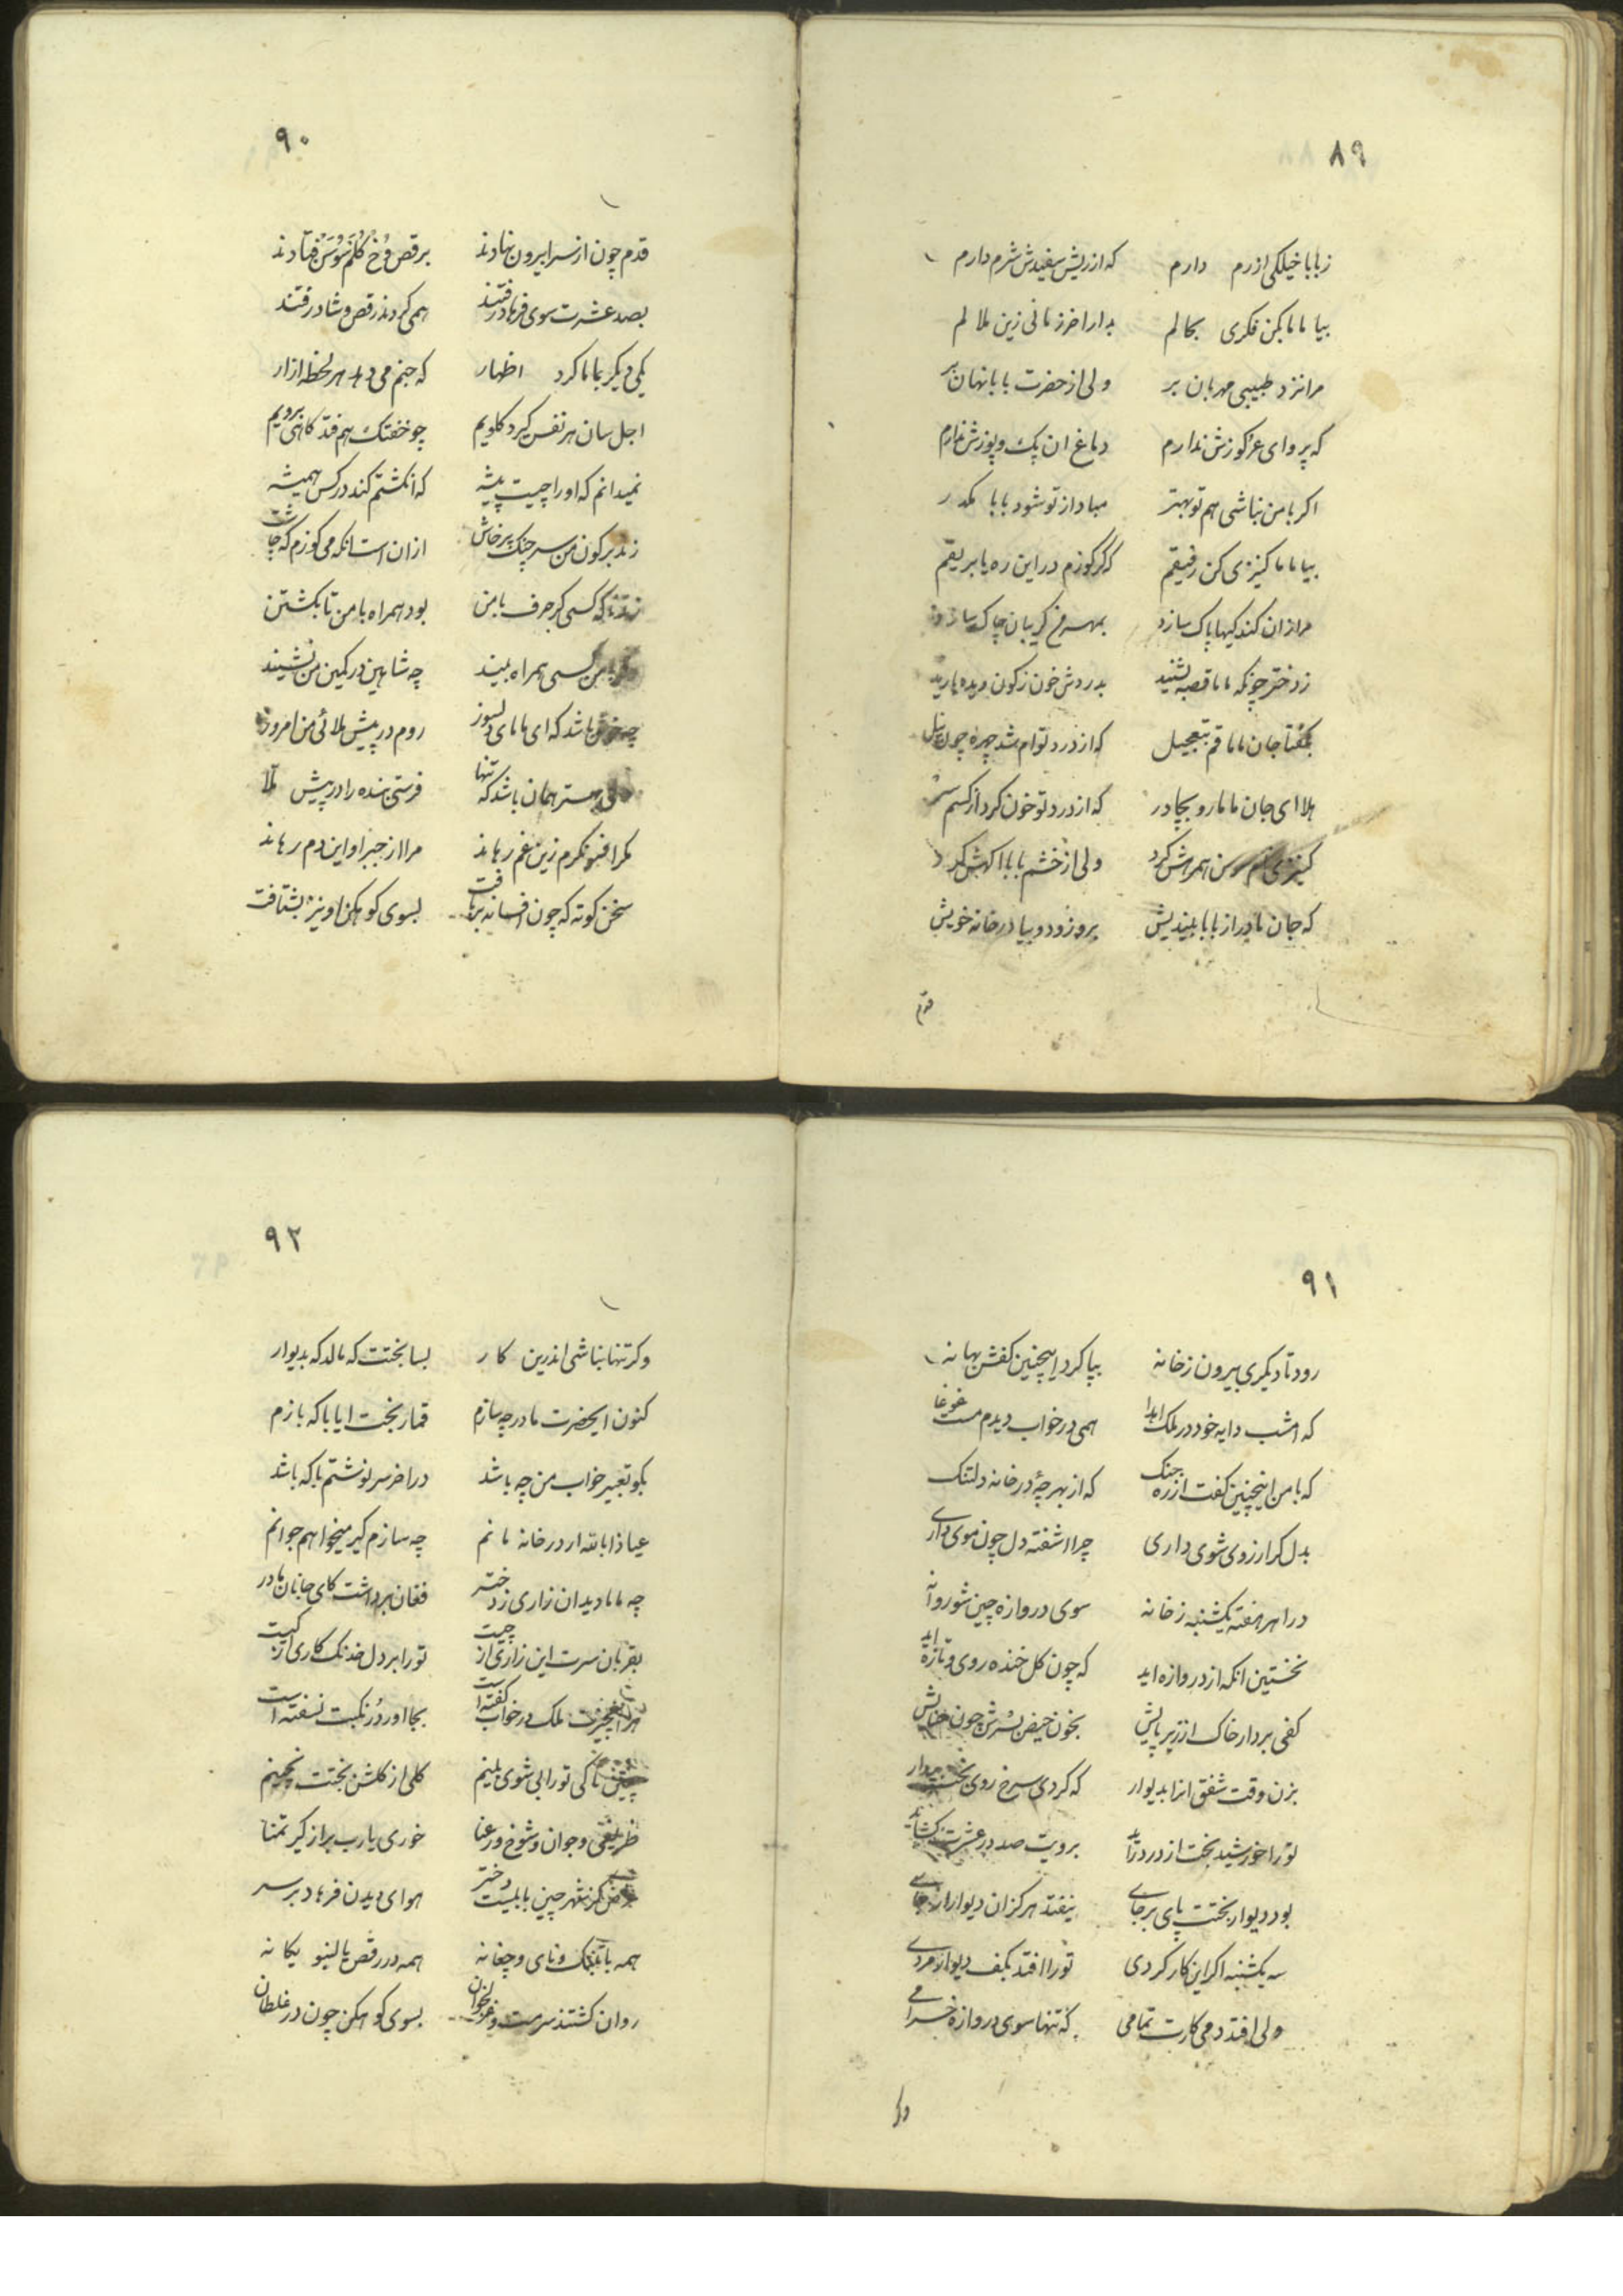 ۸۹
زبابا خیلکی ازرم دارم که از ریش سفیدش شرم دارم
بیا ماما بکن فکری بحالم بدار اخر زمانی زین ملالم
مرا نزد طبیبی مهربان بر ولی از حضرت بابا نهان بر
که پروای عرکوزش ندارم دماغ ان پک و پوزش ندارم
اکر با من نباشی هم تو بهتر مبادا از تو شود بابا مکدر
بیا ماما کنیزی کن رفیقم که کر کوزم در این ره یا بریقم
مرا زان کند کیها پاک سازد بمهرم کریبان چاک سازد
ز دختر چونکه ماما قصه بشنید بدردش خون زکون دیده بارید
بکفتا جان ماما قم بتعجیل که از درد توام شد چهره چون نیل
هلا ای جان ماما رو بچادر که از درد تو خون کرد از کسم سر
کنیزی همرهش کرد ولی از خشم بابا اکهش کرد
که جان مادر از بابا بیندیش برو زود و بیا در خانه خویش
قدم
۹۰
قدم چون از سرا بیرون نهادند برقص و فتادند
بصد عشرت سوی فرهاد رفتند همی کردند رقص و شاد رفتند
یکی دیکر بماما کرد اظهار که جنم می دهد هر لحظه ازار
اجل سان هر نفس کیرد کلویم چو خفتک هم فتد کاهی برویم
نمیدانم که او را چیست پیشه که انکشتم کند در کس همیشه
زند بر کون من سر چنک پرخاش از ان است انکه می کوزم که چاشت
که کسی کر حرف با من بود همراه با من تا بکشتن
با من کسی همراه بیند چه شاهین در کمین من نشیند
چه خوش باشد که ای مامای دلسوز روم در پیش ملائی من امروز
ولی بهتر همان باشد که تنها فرستی بنده را در پیش ملا
مکر افسونکرم زین غم رهاند مرا از جبر او این دم رهاند
سخن کوته که چون افسانه بر یافت بسوی کوهکن او نیز بشتافت
۹۱
رود تا دیکری بیرون زخانه بپا کرد اینچنین کفش بهانه
که امشب دایه خود در ملک ابدا همی در خواب دیدم مست غوغا
که با من اینچنین کفت از ره جنک که از بهر چهٔ در خانه دلتنک
بدل کر ارزوی شوی داری چرا اشفته دل چون موی داری
درا هر هفته یکشنبه زخانه سوی دروازه چین شو روانه
نخستین انکه از دروازه اید که چون کل خنده روی و تازه اید
کفی بردار خاک از زیر پایش بخون حیض بسرش چون حنایش
بزن وقت شفق انرا بدیوار که کردی سرخ روی بخت مردار
تو را خورشید بخت از در دراید برویت صد در عشرت کشاید
بود دیوار بختت پای برجای نیفتد هرکز ان دیوار از جای
سه یکشنبه اکر این کار کردی تو را افتد بکف دیوار مردی
ولی افتد دمی کارت تمامی که تنها سوی دروازه خرامی
وکر
۹۲
وکر تنها نباشی اندرین کار بسا بختت که مالد که بدیوار
کنون ایحضرت مادر چه سازم قمار بخت ایا با که بازم
بکو تعبیر خواب من چه باشد در اخر سرنوشتم با که باشد
عیاذا بالله ار در خانه مانم چه سازم کیر میخواهم جوانم
چه ماما دید ان زاری ز دختر فغان برداشت کای جانان مادر
بقربان سرت این زاری از چیست تو را بر دل خدنک کاری از کیست
ملک در خواب کفته است بجا اورد در نکبت نسفته است
تا کی تو را بی شوی بینم کلی از کلشن بختت نچینم
ظریفی و جوان و شوخ و رعنا خوری یا رب پر از کیر تمنا
غرض کز شهر چین با بیست دختر هوای دیدن فرهاد بر سر
همه با تنبک و نای و چغانه همه در رقص بالنیو یکانه
روان کشتند سرمست و غزلخوان بسوی کوهکن چون در غلطان